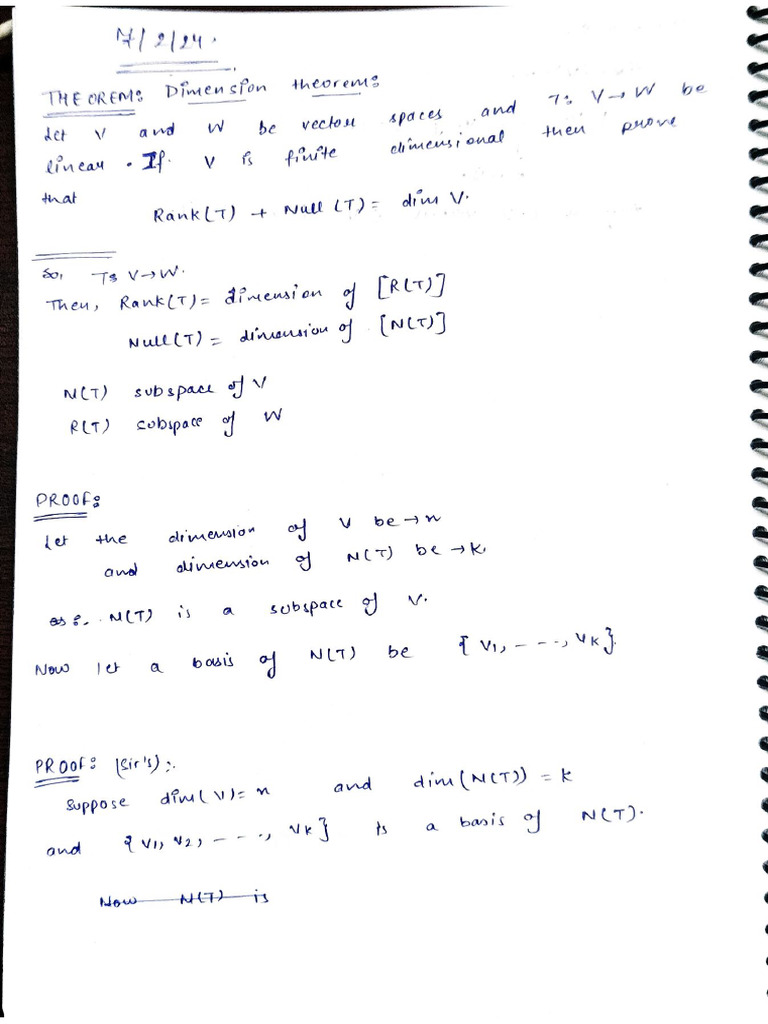 7/2/24.
THEOREM: Dimension theorem:
Let V and W be vector spaces and T: V→W be
linear. If V is finite dimensional then prove
that
Rank(T) + Null(T) = dim V.
So, T: V→W.
Then, Rank(T) = dimension of [R(T)]
Null(T) = dimension of [N(T)]
N(T) subspace of V
R(T) subspace of W
PROOF:
Let the dimension of V be → n
and dimension of N(T) be → k.
as :. N(T) is a subspace of V.
Now let a basis of N(T) be {V1, - - -, VK}.
PROOF: (Sir's) :.
Suppose dim(V) = n and dim(N(T)) = k
and {V1, V2, - - -, VK} is a basis of N(T).
Now N(T) is